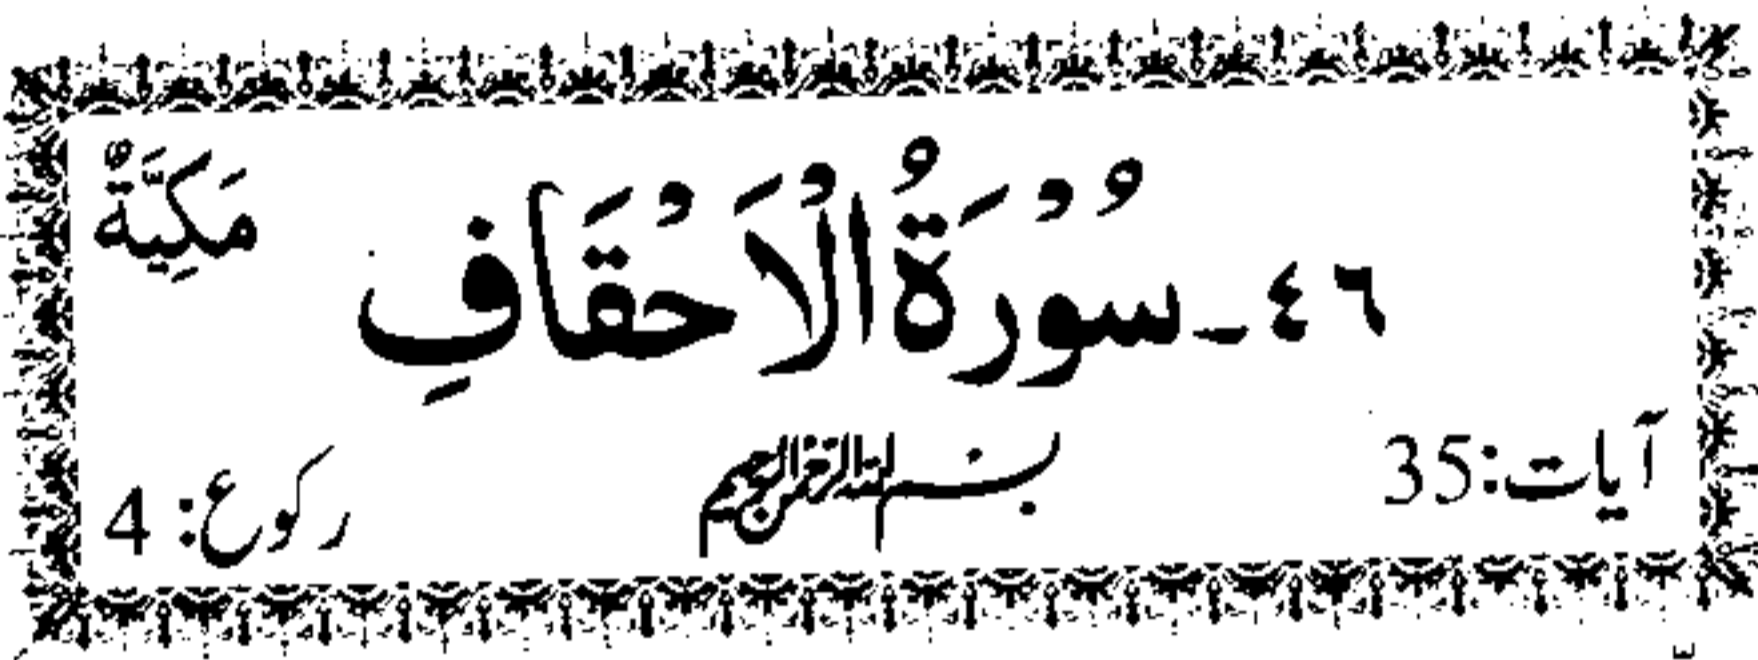 ٤٦ - سُوْرَةُ الْاَحْقَافِ مَكِّيَّةٌ
آیات: 35 بسم الله الرحمن الرحيم رکوع: 4